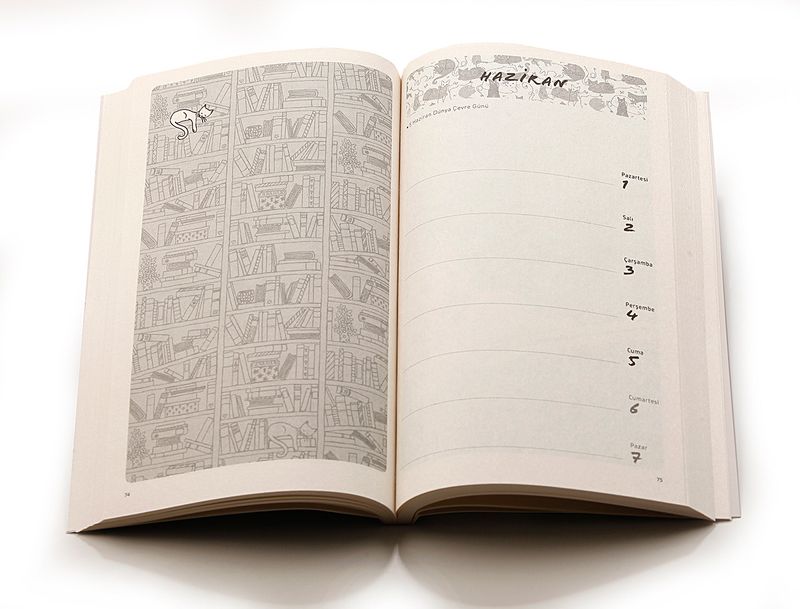 HAZİRAN
•5 Haziran Dünya Çevre Günü
Pazartesi
1
Salı
2
Çarşamba
3
Perşembe
4
Cuma
5
Cumartesi
6
Pazar
7
74
75